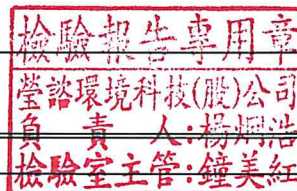 檢驗報告專用章
瑩諮環境科技(股)公司
負責人:楊烱浩
檢驗室主管:鐘美紅